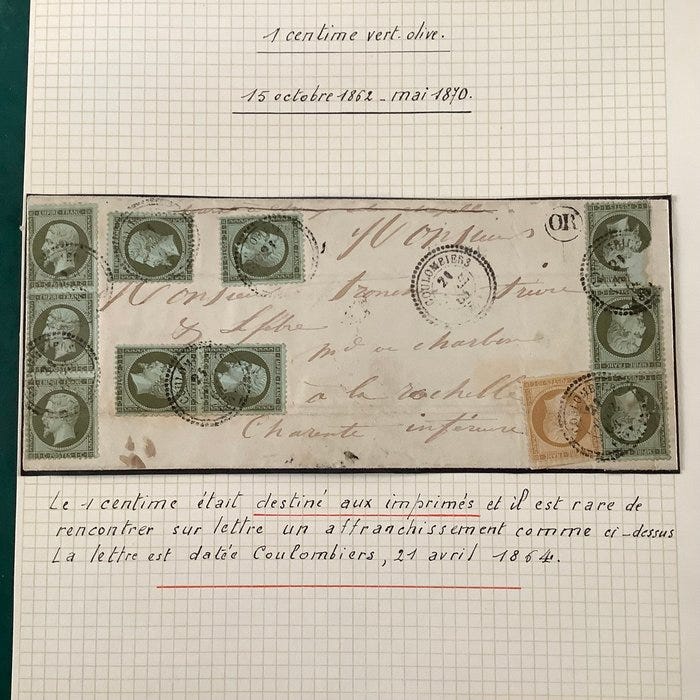 1 centime vert-olive.
15 octobre 1862 - mai 1870.
OR
Monsieur
COULOMBIERS
21
Monsieur
& Lefebre
md de charbon
à la rochelle
Charente inférieure
EMPIRE FRANC
POSTES
Le 1 centime était destiné aux imprimés et il est rare de
rencontrer sur lettre un affranchissement comme ci-dessus
La lettre est datée Coulombiers, 21 avril 1864.